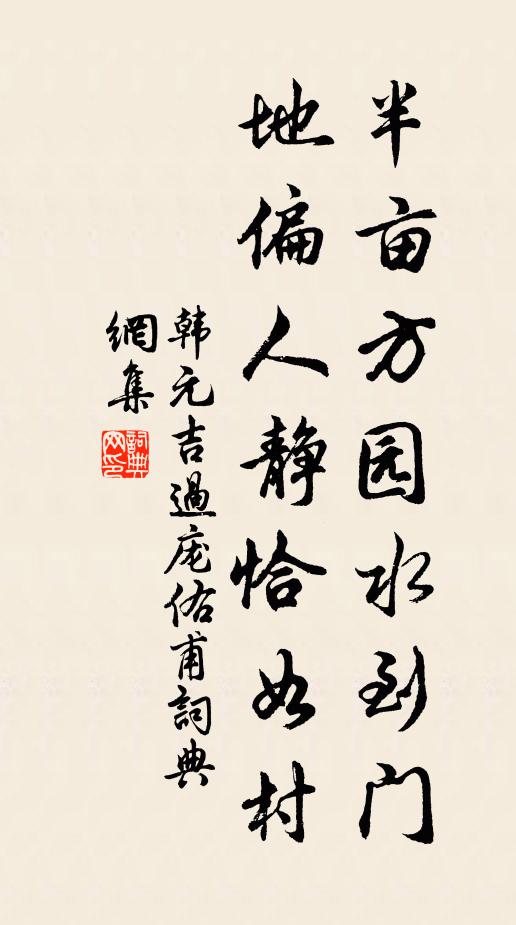 半亩方园水到门
地偏人静恰如村
韩元吉過庞佑甫詞典
網集
詞典网印